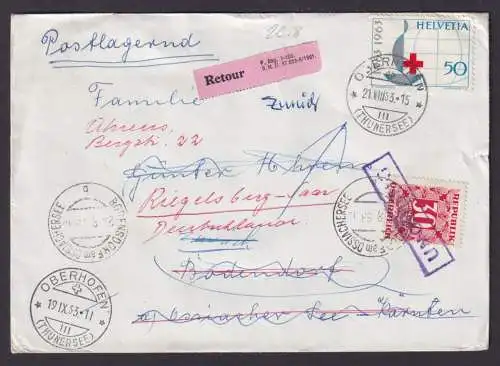 22.8
Postlagernd
Retour
HELVETIA
1863 1963
50
OBERHOFEN
21.VIII.63.-15
III
(THUNERSEE)
Familie
Zurück
Ahrens,
Bergstr. 22
Günter Ahrens
Riegelsberg-Saar
Deutschland
BODENSDORF am OSSIACHERSEE
a
30
REPUBLIK
ÖSTERREICH
BODENSDORF am OSSIACHERSEE
Bodendorf
OBERHOFEN
19.IX.63.-11
III
(THUNERSEE)
Ossiacher See - Kärnten